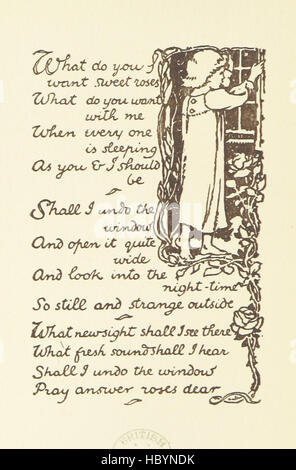 What do you
want sweet roses
What do you want
with me
When every one
is sleeping
As you & I should
be
Shall I undo the
window
And open it quite
wide
And look into the
night-time
So still and strange outside
What new sight shall I see there
What fresh sound shall I hear
Shall I undo the window
Pray answer roses dear
BRITISH
alamy
Image ID: HBYNDK
www.alamy.com